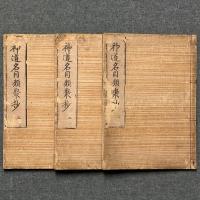 神道名目類聚抄 三
神道名目類聚抄 二
神道名目類聚抄